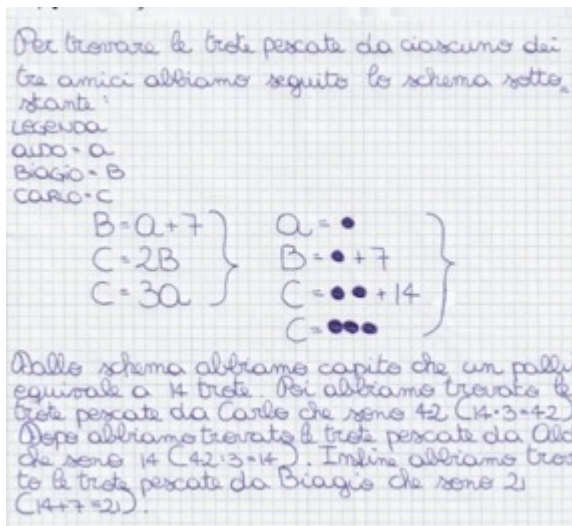 Per trovare le trote pescate da ciascuno dei
tre amici abbiamo seguito lo schema sotto
stante:
LEGENDA
ALDO = A
BIAGIO = B
CARLO = C
B = A + 7
C = 2B
C = 3A
A = •
B = • + 7
C = • • + 14
C = •••
Dallo schema abbiamo capito che un palli
equivale a 14 trote. Poi abbiamo trovato le
trote pescate da Carlo che sono 42 (14·3=42)
Dopo abbiamo trovato le trote pescate da Ald
che sono 14 (42:3=14). Infine abbiamo trov
to le trote pescate da Biagio che sono 21
(14+7=21).